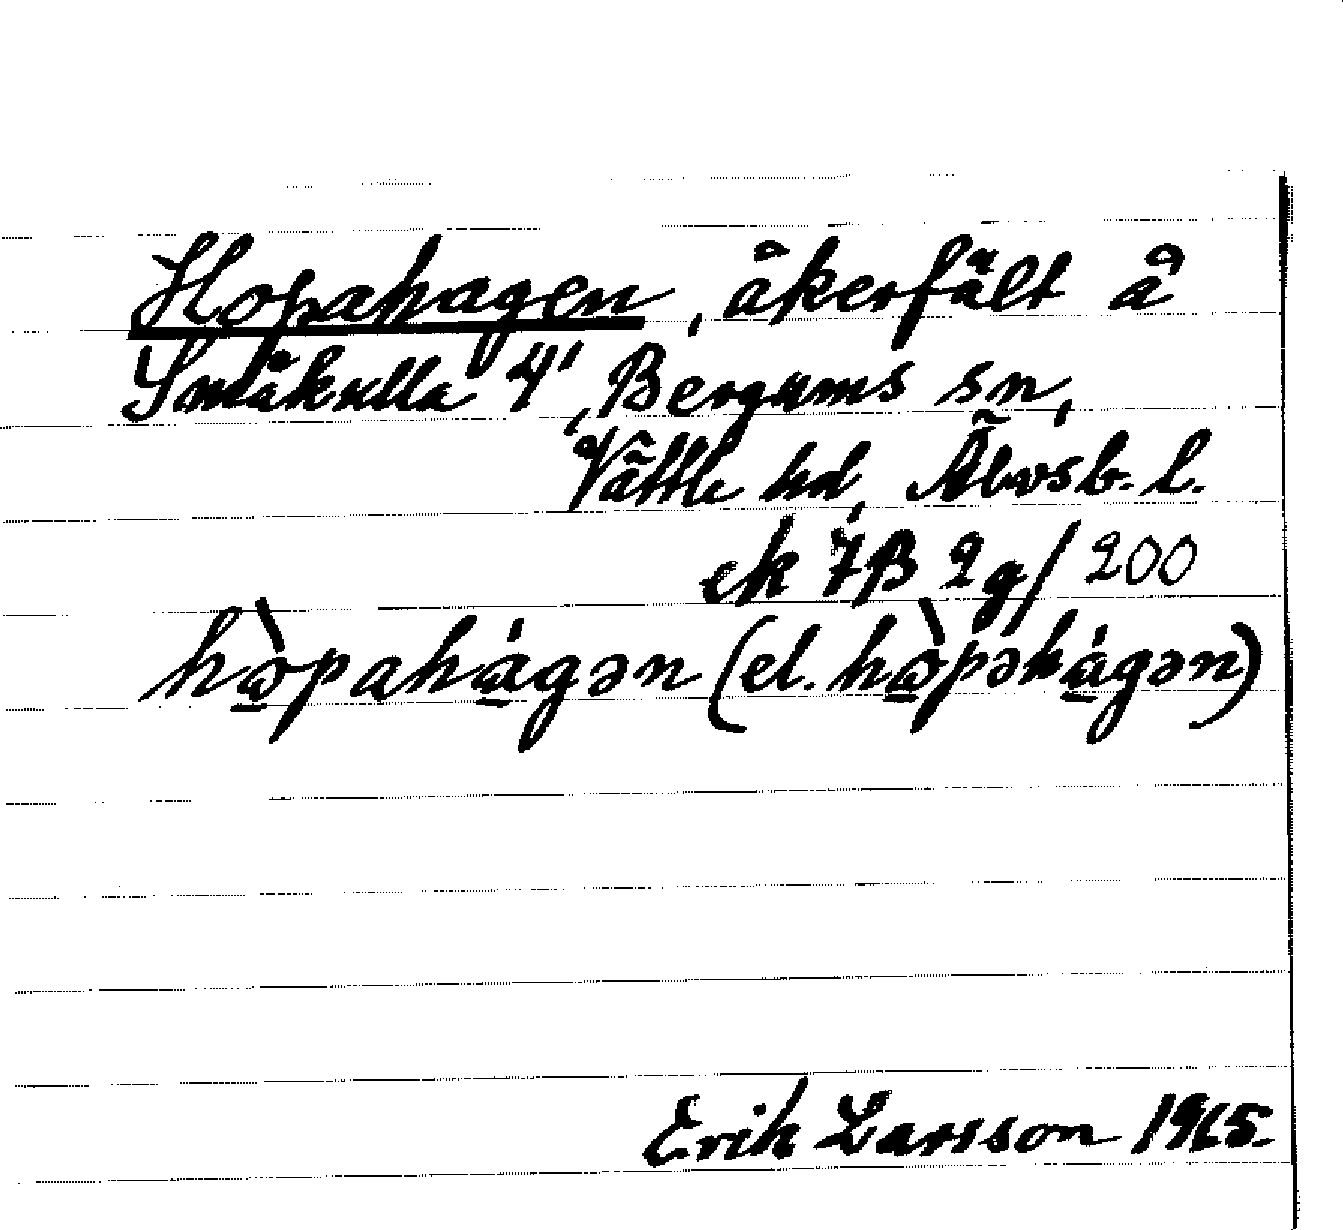 Hopahagen, åkerfält å
Småkulla 4¹, Bergums sn,
Vättle hd, Älvsb. l.
ek 7B 2g/200
hò̠pahá̠gən (el. hò̠pəhá̠gən)
Erik Larsson 1965.